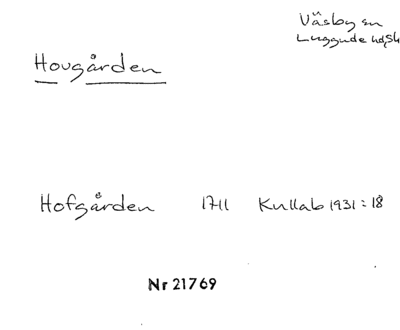 Väsby sn
Luggude hd, Sk
Hovgården
Hofgården 1711 Kullab 1931:18
Nr 21769